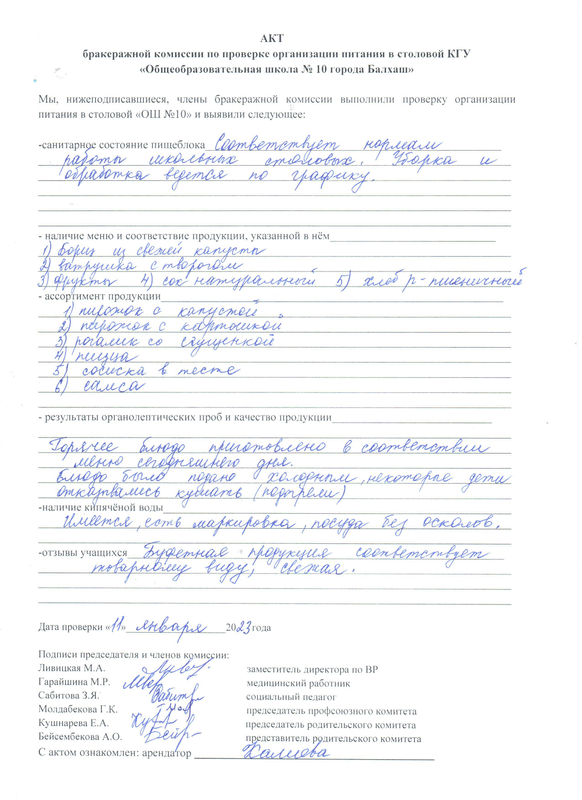 АКТ
бракеражной комиссии по проверке организации питания в столовой КГУ
«Общеобразовательная школа № 10 города Балхаш»
Мы, нижеподписавшиеся, члены бракеражной комиссии выполнили проверку организации
питания в столовой «ОШ №10» и выявили следующее:
-санитарное состояние пищеблока Соответствует нормам
работы школьных столовых. Уборка и
обработка ведется по графику.
- наличие меню и соответствие продукции, указанной в нём
1) Борщ из свежей капусты
2) ватрушка с творогом
3) Фрукты 4) сок натуральный 5) хлеб р-пшеничный
- ассортимент продукции
1) пирожок с капустой
2) пирожок с картошкой
3) рогалик со сгущенкой
4) пицца
5) сосиска в тесте
6) самса
- результаты органолептических проб и качество продукции
Горячее блюдо приготовлено в соответствии
меню сегодняшнего дня.
Блюдо было подано холодным, некоторые дети
отказывались кушать (подогрели)
-наличие кипячёной воды
Имеется, есть маркировка, посуда без осколов.
-отзывы учащихся Буфетная продукция соответствует
товарному виду, свежая.
Дата проверки «11» января 2023 года
Подписи председателя и членов комиссии:
Ливицкая М.А. заместитель директора по ВР
Гарайшина М.Р. медицинский работник
Сабитова З.Я. социальный педагог
Молдабекова Г.К. председатель профсоюзного комитета
Кушнарева Е.А. председатель родительского комитета
Бейсембекова А.О. представитель родительского комитета
С актом ознакомлен: арендатор Халиева